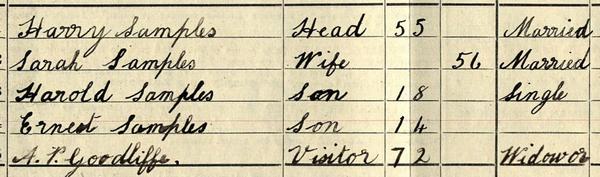 Harry Samples Head 55 Married
Sarah Samples Wife 56 Married
Harold Samples Son 18 Single
Ernest Samples Son 14
A. P. Goodliffe. Visitor 72 Widowor